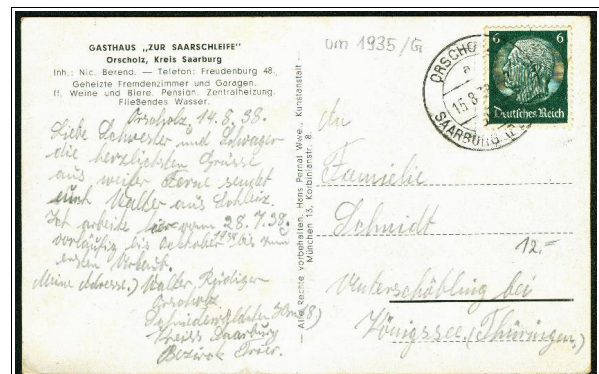 GASTHAUS „ZUR SAARSCHLEIFE"
Orscholz, Kreis Saarburg
Inh.: Nic. Berend. — Telefon: Freudenburg 48.
Geheizte Fremdenzimmer und Garagen.
ff. Weine und Biere. Pension. Zentralheizung.
Fließendes Wasser.
Orscholz, 14.8.38.
Liebe Schwester und Schwager
die herzlichsten Grüsse
aus weiter Ferne sendet
euch Walter aus Schleiz.
Ich arbeite hier vom 28.7.38.
vorläufig bis october 1938 bis zum
ersten Urlaub.
Meine Adresse.) Walter Rüdiger
Orscholz
Kreis Saarburg
Bezirk Trier.
— Alle Rechte vorbehalten, Hans Pernat Wwe., Kunstanstalt —
München 13, Korbinianstr. 8.
um 1935/G
ORSCHO
a
15.8.3
SAARBURG
6 6
Deutsches Reich
An
Familie
Schmidt
12.-
Unterschöbling bei
Königssee, (Thüringen.)